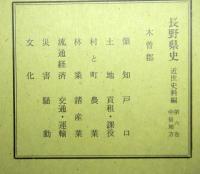 長野県史 近世史料編 第六巻 中信地方
木曽郡
領知 戸口
土地 貢租・課役
村と町 農業
林業 諸産業
流通経済 交通・運輸
災害 騒動
文化